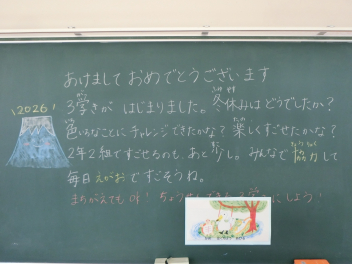 あけまして おめでとうございます
2026
3学きが はじまりました。冬休みはどうでしたか?
色いろなことに チャレンジできたかな? 楽しくすごせたかな?
2年2組ですごせるのも、あと少し。みんなで協力して
毎日 えがおですごそうね。
まちがえてもOK! ちょうせん にしよう!